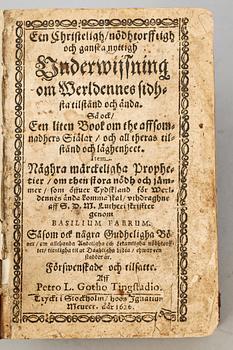 Ein Christeligh, nödhtorfftigh
och ganska nyttigh
Underwijsning
om Werldennes sidh-
sta tilstånd och ända.
Så ock/
Een liten Book om the affsom-
nadhers Siälar/ och all theras til-
stånd och läghenheet.
Item
Någhra märckeligha Prophe-
tier/ om then stora nödh och jäm-
mer/ som öfwer Tydskland för Werl-
dennes ända komma skal/ uthdraghne
aff S. D. M. Lutheri skriffter
genom
BASILIUM FABRUM.
Såsom ock någre Gudheligha Bö-
ner/ om allehanda
Förswenskade och tilsatte.
Aff
Petro L. Gotho Tingstadio.
Tryckt i Stockholm/ hoos Ignatium
Meurer. Åhr 1626.